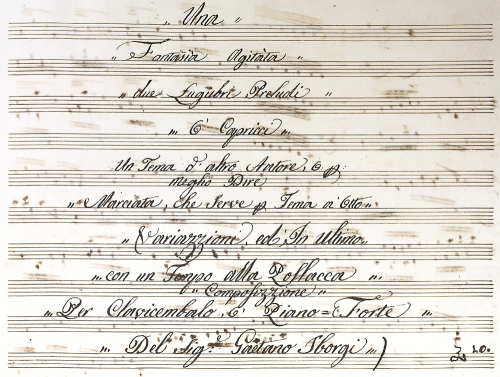 „ Una „
„ Fantasia Agitata „
„ due Lugubri Preludi „
„ è Capricci „
Un Tema d' altro Autore, ò &
meglio Dire
„ Marciata, che serve & Tema a' Otto „
„ Variazzioni, ed' In ultimo „
„ con un Tempo alla Pollacca „
„ Composizzione „
„ Per Clavicembalo, ò Piano=Forte „
„ Del Sig.e Gaetano Sborgi „)
10.